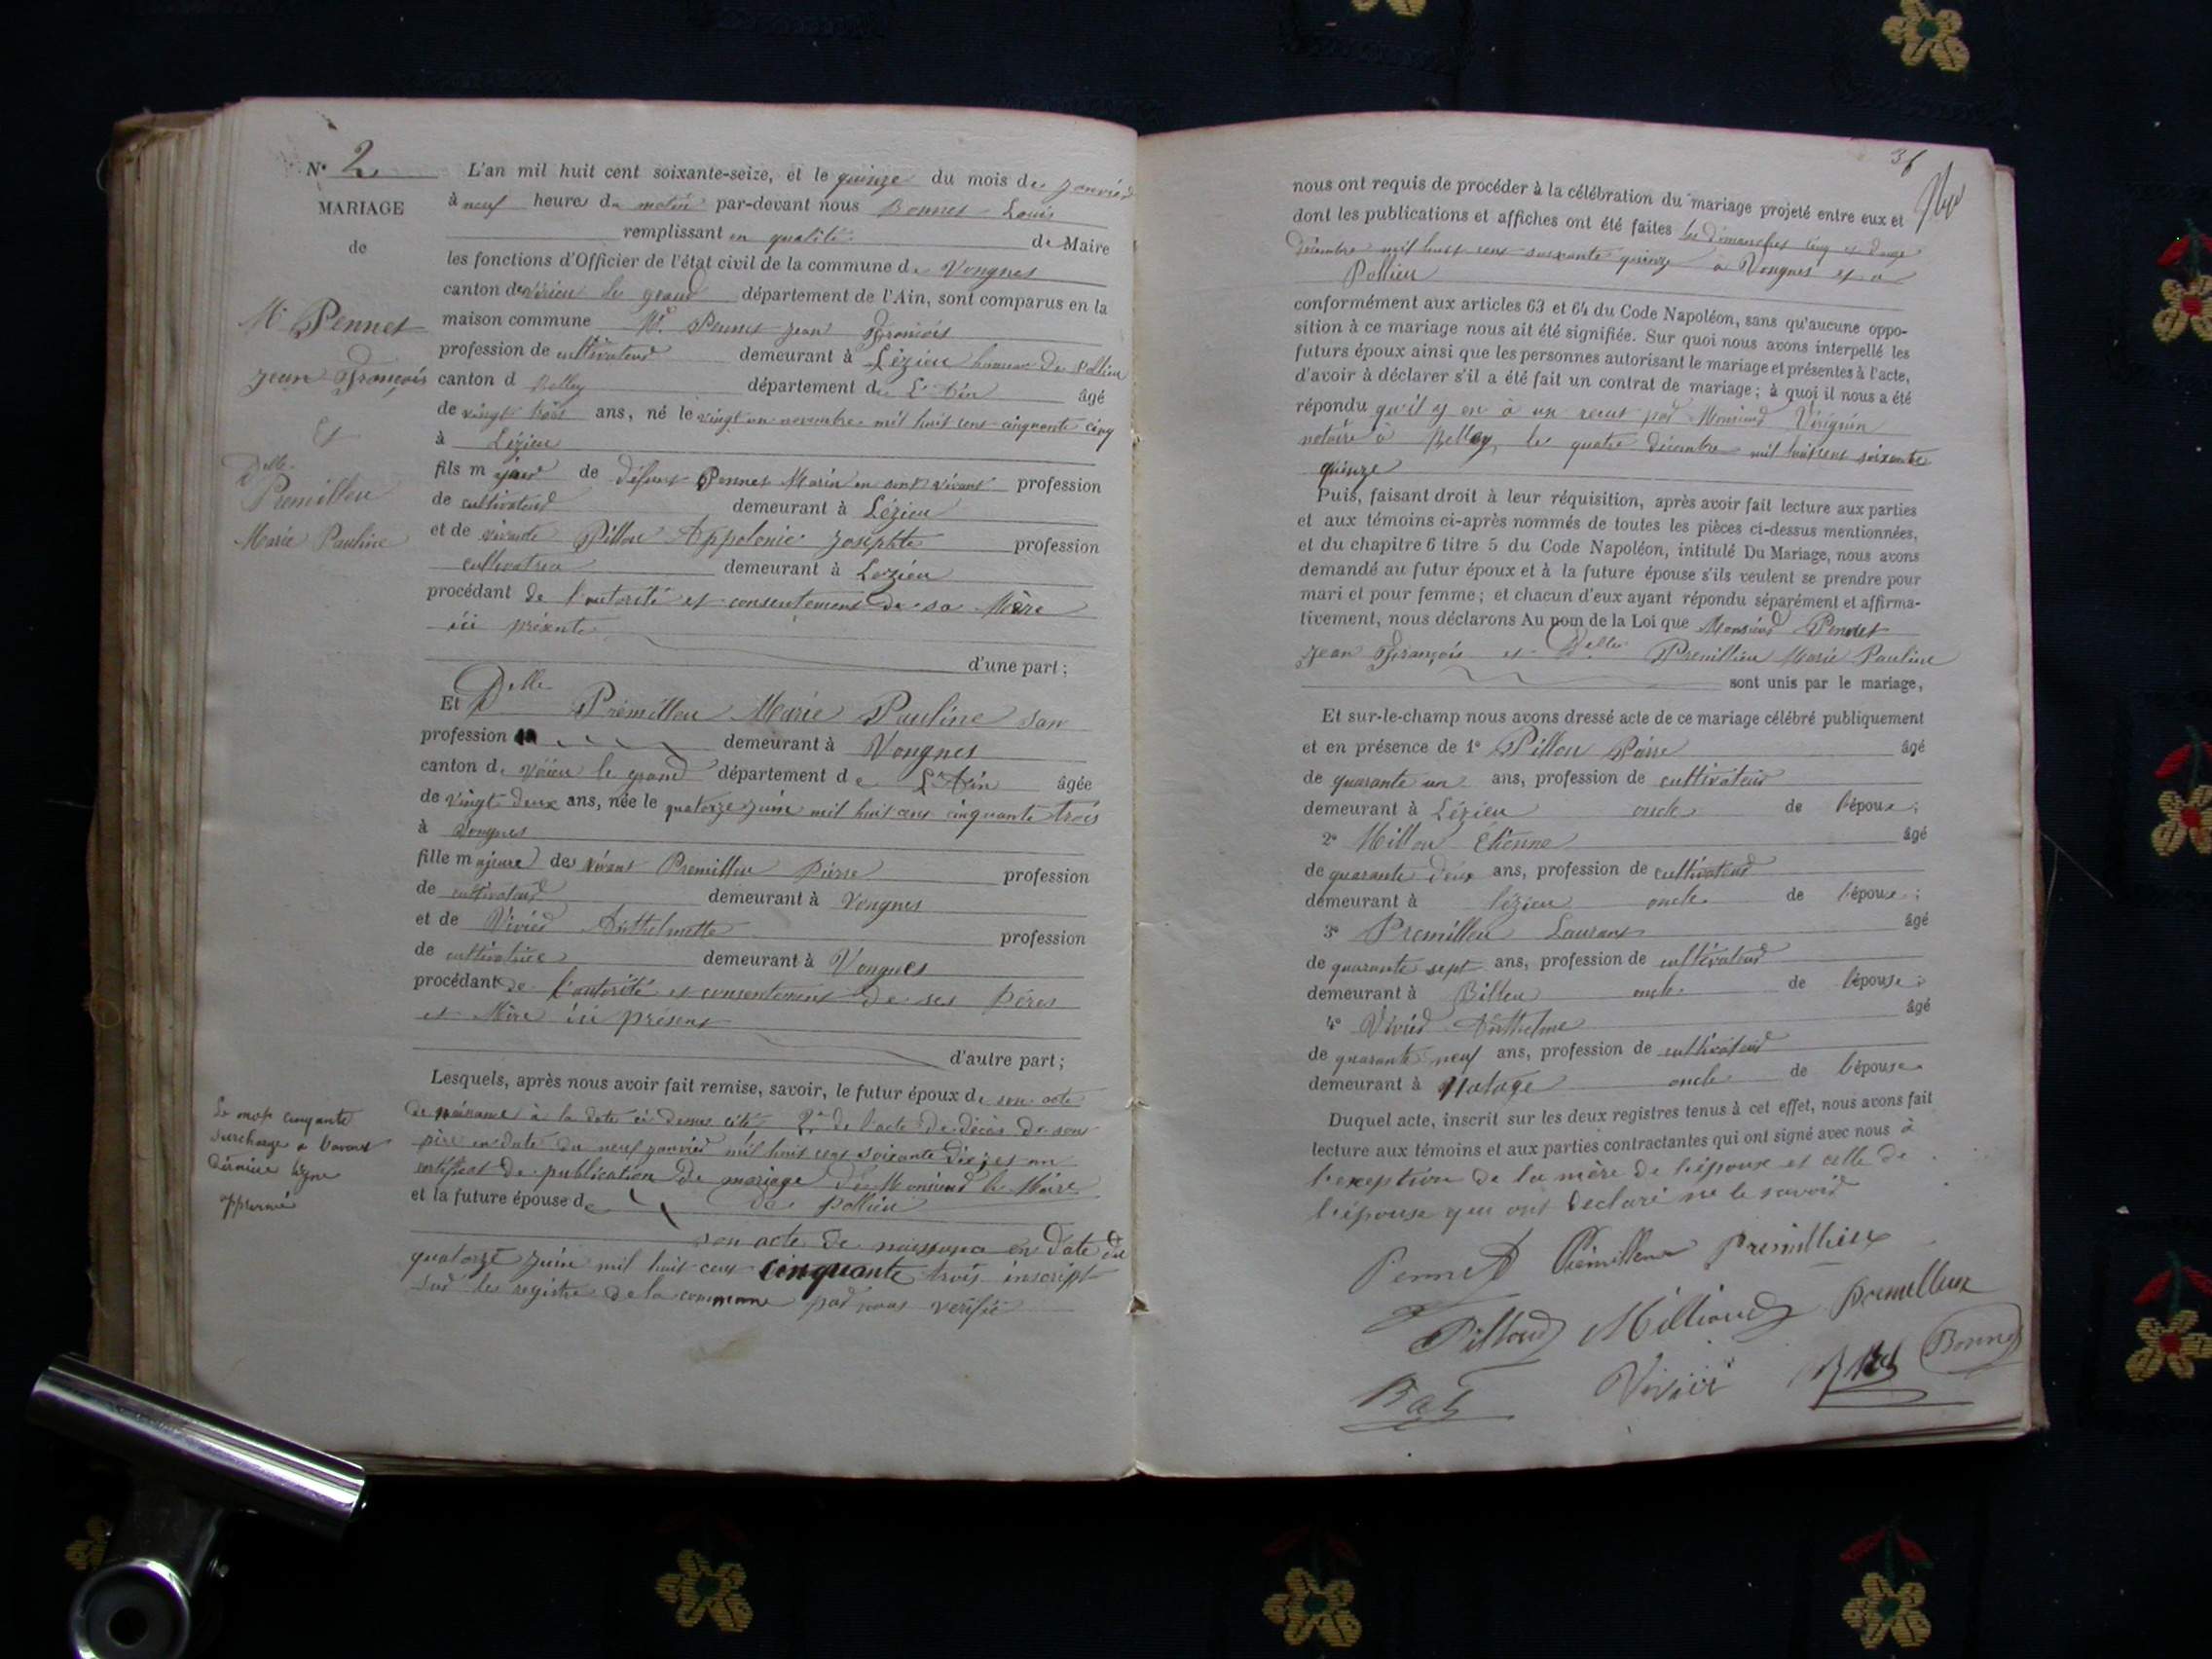 N° 2
MARIAGE
de
Mr Pennet
Jean François
Et
Delle
Premilleu
Marie Pauline
L'an mil huit cent soixante-seize, et le quinze du mois de janvier
à neuf heures du matin par-devant nous Bonnet Louis
remplissant en qualité de Maire
les fonctions d'Officier de l'état civil de la commune de Vongnes
canton de virieu le grand département de l'Ain, sont comparus en la
maison commune Mr. Pennet jean François
profession de cultivateur demeurant à Lézieu hameau de Pollieu
canton d Belley département de L'Ain âgé
de vingt trois ans, né le vingt un novembre mil huit cent cinquante cinq
à Lézieu
fils majeur de défunt Pennet Marin en son vivant profession
de cultivateur demeurant à Lézieu
et de vivante Pillou Appolonie Josephte profession
cultivatrice demeurant à Lézieu
procédant de l'autorité et consentement de sa Mère
ici présente
d'une part;
Et Delle Prémilleu Marie Pauline san
profession demeurant à Vongnes
canton de virieu le grand département de L'Ain âgée
de vingt deux ans, née le quatorze juin mil huit cent cinquante trois
à Vongnes
fille majeure de vivant Premilleu Pierre profession
de cultivateur demeurant à Vongnes
et de Vivier Anthelmette profession
de cultivatrice demeurant à Vongnes
procédant de l'autorité et consentement de ses Pères
et Mère ici présent
d'autre part;
Lesquels, après nous avoir fait remise, savoir, le futur époux de son acte
de naissance à la date ci dessus cité, 2° de l'acte de décès de son
père en date du neuf janvier mil huit cent soixante dix, et un
certificat de publication de mariage de Monsieur le Maire
et la future épouse de de Pollieu
son acte de naissance en date du
quatorze juin mil huit cent cinquante trois inscript
sur les registre de la commune par nous vérifié
Le mot cinquante
surchargé à l'avant
dernière ligne
approuvé
36
nous ont requis de procéder à la célébration du mariage projeté entre eux et
dont les publications et affiches ont été faites les dimanches cinq et douze
Décembre mil huit cent soixante quinze à Vongnes et à
Pollieu
conformément aux articles 63 et 64 du Code Napoléon, sans qu'aucune oppo-
sition à ce mariage nous ait été signifiée. Sur quoi nous avons interpellé les
futurs époux ainsi que les personnes autorisant le mariage et présentes à l'acte,
d'avoir à déclarer s'il a été fait un contrat de mariage; à quoi il nous a été
répondu qu'il y en à un recut par Monsieur Virignin
notaire à Belley, le quatre décembre mil huit cent soixante
quinze
Puis, faisant droit à leur réquisition, après avoir fait lecture aux parties
et aux témoins ci-après nommés de toutes les pièces ci-dessus mentionnées,
et du chapitre 6 titre 5 du Code Napoléon, intitulé Du Mariage, nous avons
demandé au futur époux et à la future épouse s'ils veulent se prendre pour
mari et pour femme; et chacun d'eux ayant répondu séparément et affirma-
tivement, nous déclarons Au nom de la Loi que Monsieur Pennet
Jean François et Delle Premillieu Marie Pauline
sont unis par le mariage,
Et sur-le-champ nous avons dressé acte de ce mariage célébré publiquement
et en présence de 1° Pillou Pierre âgé
de quarante un ans, profession de cultivateur
demeurant à Lézieu oncle de l'époux;
2° Millou Etienne âgé
de quarante deux ans, profession de cultivateur
demeurant à Lézieu oncle de l'époux;
3° Premilleu Laurent âgé
de quarante sept ans, profession de cultivateur
demeurant à Billeu oncle de l'épouse;
4° Vivier Anthelme âgé
de quarante neuf ans, profession de cultivateur
demeurant à Flataye oncle de l'épouse
Duquel acte, inscrit sur les deux registres tenus à cet effet, nous avons fait
lecture aux témoins et aux parties contractantes qui ont signé avec nous à
l'exeption de la mère de l'époux et celle de
l'épouse qui ont déclaré ne le savoir
Pennet Premilleux Premillieux
Pilloud Millioud premilleux
Vivier Bonnet